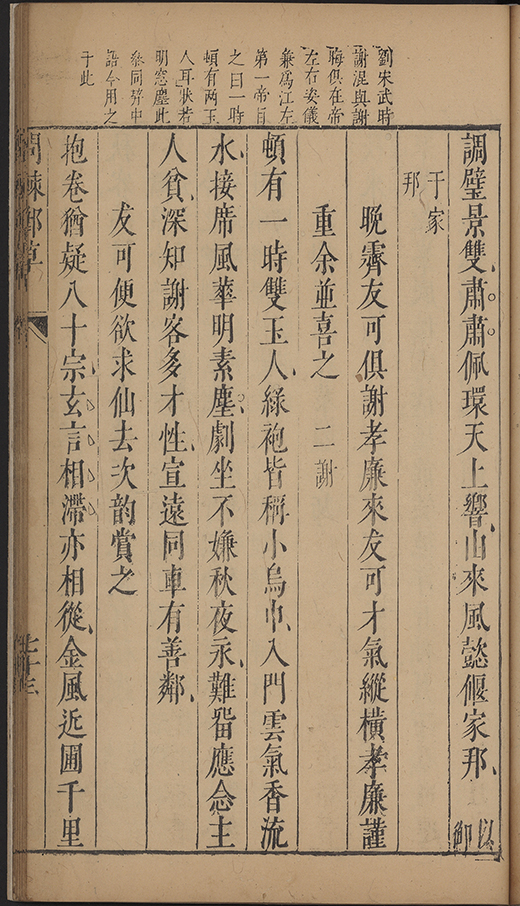 劉宋武時
謝混與謝
晦俱在帝
左右姿儀
兼為江左
第一帝目
之曰一時
頓有两玉
人耳狀若
明窓塵此
叅同契中
語今用之
于此
調璧景雙肅肅佩環天上響山來風懿偃家邦
于家
邦
晚霽友可俱謝孝廉來友可才氣縱橫孝廉謹
重余並喜之 二謝
頓有一時雙玉人綠袍皆稱小烏巾入門雲氣香流
水接席風華明素塵劇坐不嫌秋夜永難畱應念主
人貧深知謝客多才性宣遠同車有善鄰
友可便欲求仙去次韵賞之
抱卷猶疑八十宗玄言相滯亦相從金風近圃千里